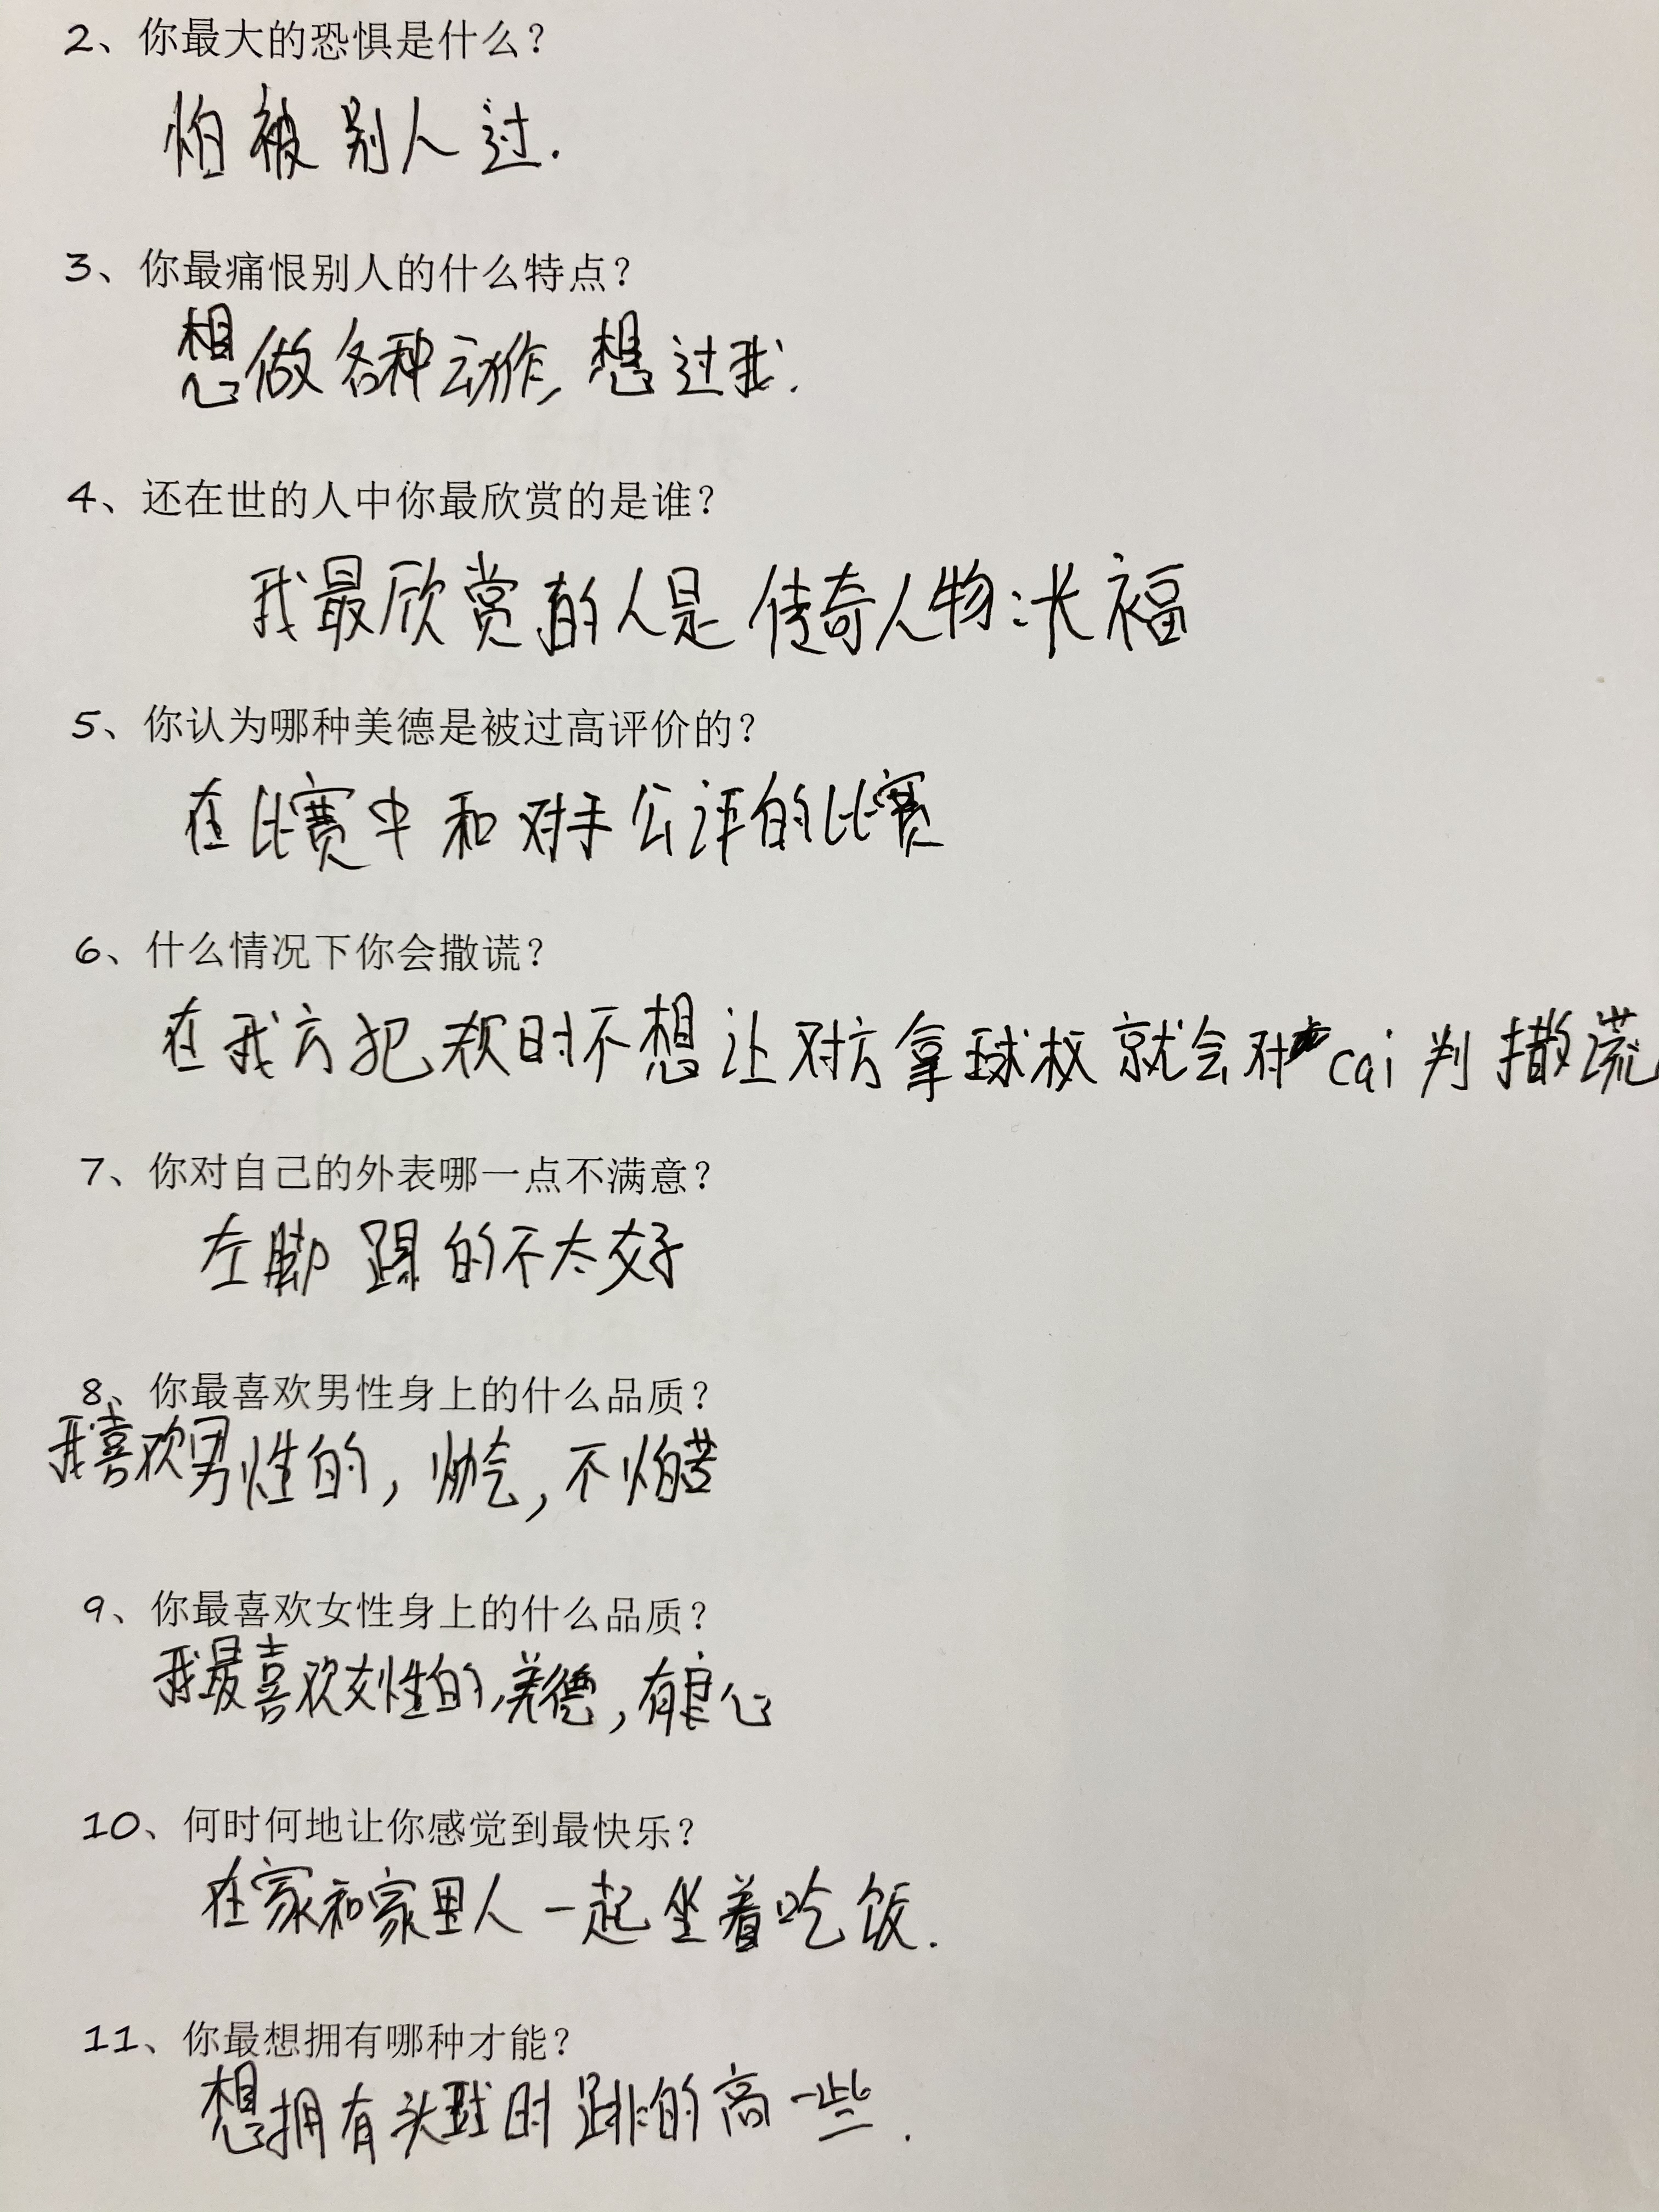 2、你最大的恐惧是什么?
怕被别人过.
3、你最痛恨别人的什么特点?
想做各种动作,想过我.
4、还在世的人中你最欣赏的是谁?
我最欣赏的人是传奇人物:长福
5、你认为哪种美德是被过高评价的?
在比赛中和对手公评的比赛
6、什么情况下你会撒谎?
在我方犯规时不想让对方拿球权就会对cai判撒谎
7、你对自己的外表哪一点不满意?
左脚踢的不太好
8、你最喜欢男性身上的什么品质?
我喜欢男性的,帅气,不怕苦
9、你最喜欢女性身上的什么品质?
我最喜欢女性的,美德,有良心
10、何时何地让你感觉到最快乐?
在家和家里人一起坐着吃饭.
11、你最想拥有哪种才能?
想拥有头球时跳的高一些.